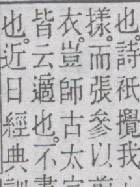 也。詩祇攪我
樣。而張參以
衣。豈師古太
皆云適也。不
也。近日經典